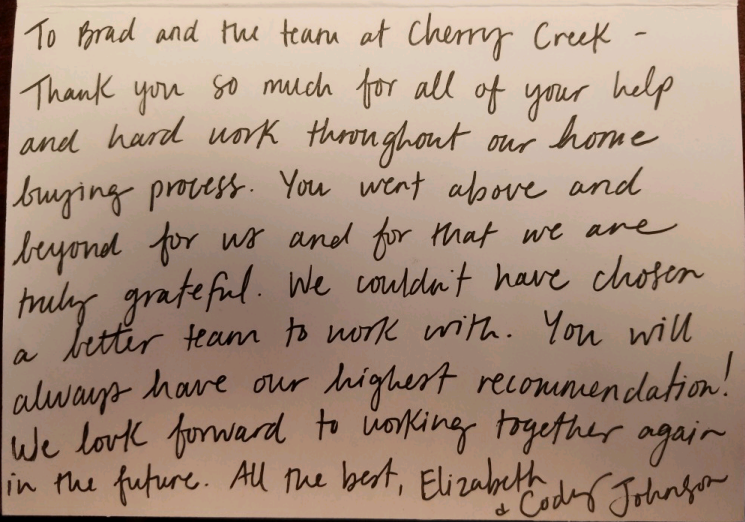 To Brad and the team at Cherry Creek -
Thank you so much for all of your help
and hard work throughout our home
buying process. You went above and
beyond for us and for that we are
truly grateful. We couldn't have chosen
a better team to work with. You will
always have our highest recommendation!
We look forward to working together again
in the future. All the best, Elizabeth
& Cody Johnson